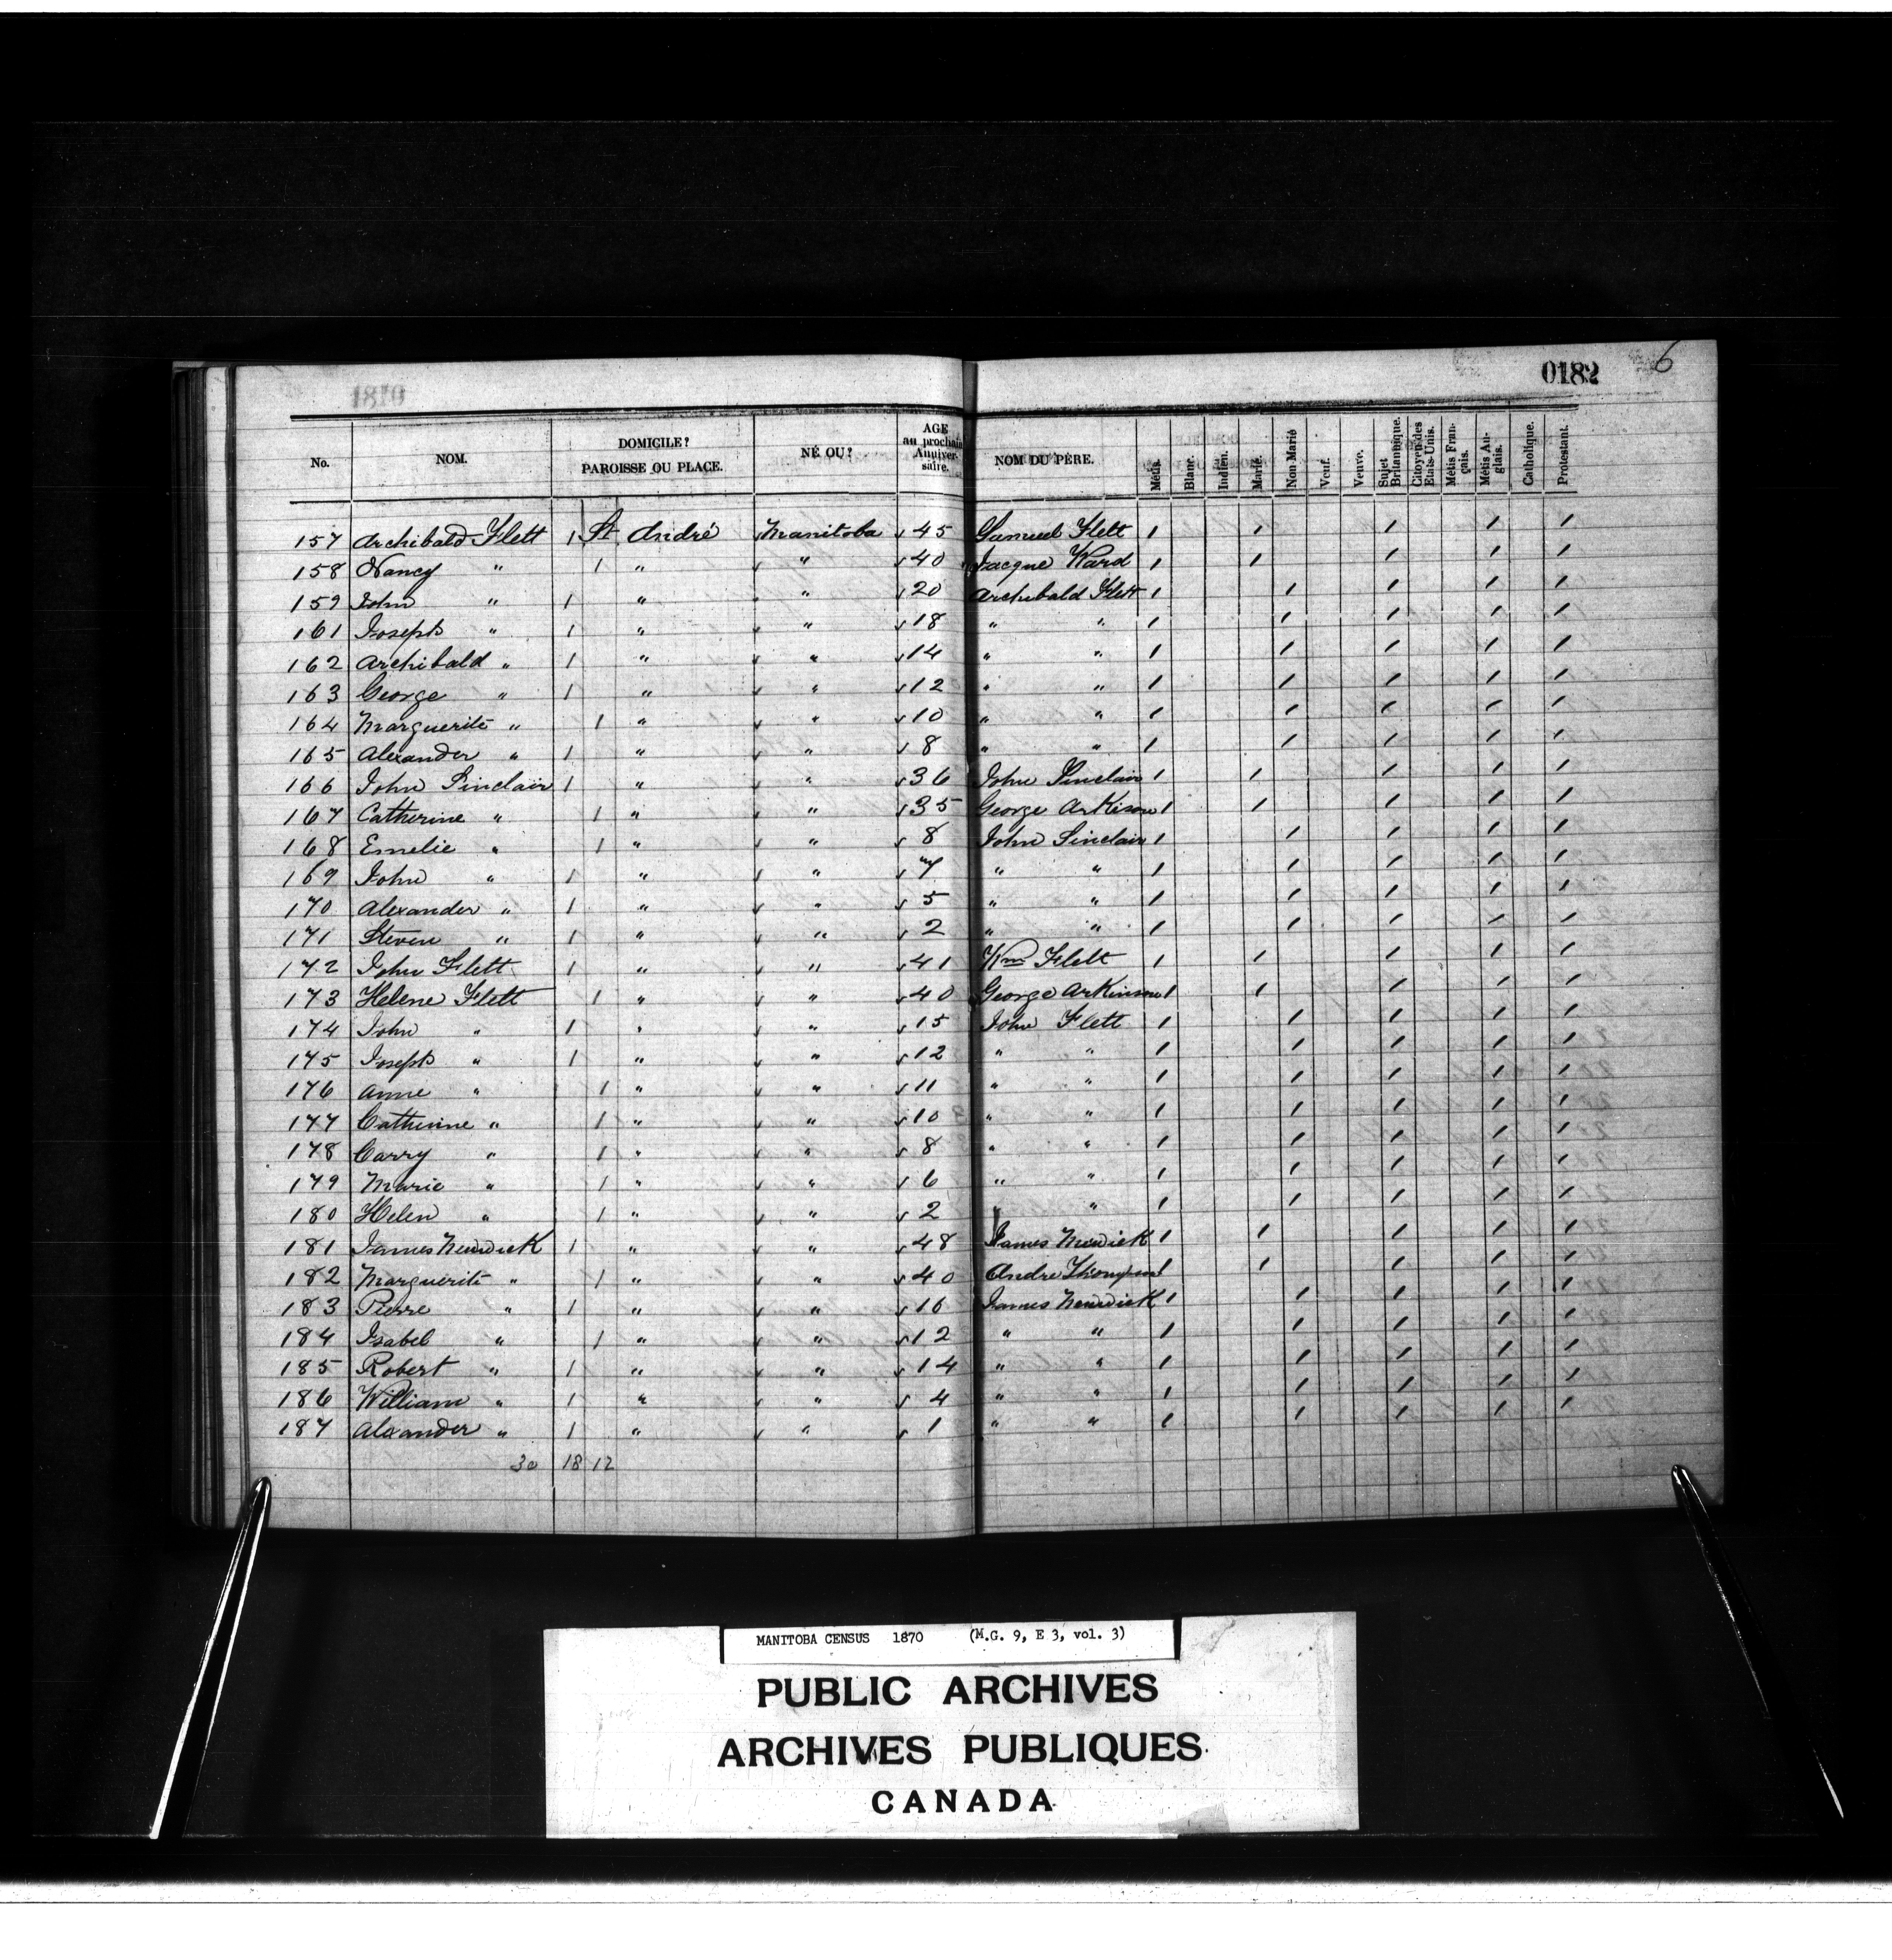 1870
0182 6
No. NOM. DOMICILE? PAROISSE OU PLACE. NÉ OU? AGE au prochain Anniversaire. NOM DU PÈRE. Métis. Blanc. Indien. Marié. Non Marié Veuf. Veuve. Sujet Britannique. Citoyen des Etats-Unis. Métis Français. Métis Anglais. Catholique. Protestant.
157 Archibald Flett 1 St André Manitoba 45 Samuel Flett 1 1 1 1 1
158 Nancy " 1 " " 40 Jacque Ward 1 1 1 1 1
159 John " 1 " " 20 Archibald Flett 1 1 1 1 1
161 Joseph " 1 " " 18 " " 1 1 1 1 1
162 Archibald " 1 " " 14 " " 1 1 1 1 1
163 George " 1 " " 12 " " 1 1 1 1 1
164 Marguerite " 1 " " 10 " " 1 1 1 1 1
165 Alexander " 1 " " 8 " " 1 1 1 1 1
166 John Sinclair 1 " " 36 John Sinclair 1 1 1 1 1
167 Catherine " 1 " " 35 George Arkison 1 1 1 1 1
168 Emelie " 1 " " 8 John Sinclair 1 1 1 1 1
169 John " 1 " " 7 " " 1 1 1 1 1
170 Alexander " 1 " " 5 " " 1 1 1 1 1
171 Steven " 1 " " 2 " " 1 1 1 1 1
172 John Flett 1 " " 41 Wm Flett 1 1 1 1 1
173 Helene Flett 1 " " 40 George Arkinson 1 1 1 1 1
174 John " 1 " " 15 John Flett 1 1 1 1 1
175 Joseph " 1 " " 12 " " 1 1 1 1 1
176 Anne " 1 " " 11 " " 1 1 1 1 1
177 Catherine " 1 " " 10 " " 1 1 1 1 1
178 Carry " 1 " " 8 " " 1 1 1 1 1
179 Marie " 1 " " 6 " " 1 1 1 1 1
180 Helen " 1 " " 2 " " 1 1 1 1 1
181 James 1 " " 48 James 1 1 1 1 1
182 Marguerite " 1 " " 40 Andre 1 1 1 1 1
183 Pierre " 1 " " 16 James 1 1 1 1 1
184 Isabel " 1 " " 12 " " 1 1 1 1 1
185 Robert " 1 " " 14 " " 1 1 1 1 1
186 William " 1 " " 4 " " 1 1 1 1 1
187 Alexander " 1 " " 1 " " 1 1 1 1 1
30 18 12
MANITOBA CENSUS 1870 (M.G. 9, E 3, vol. 3)
PUBLIC ARCHIVES
ARCHIVES PUBLIQUES
CANADA